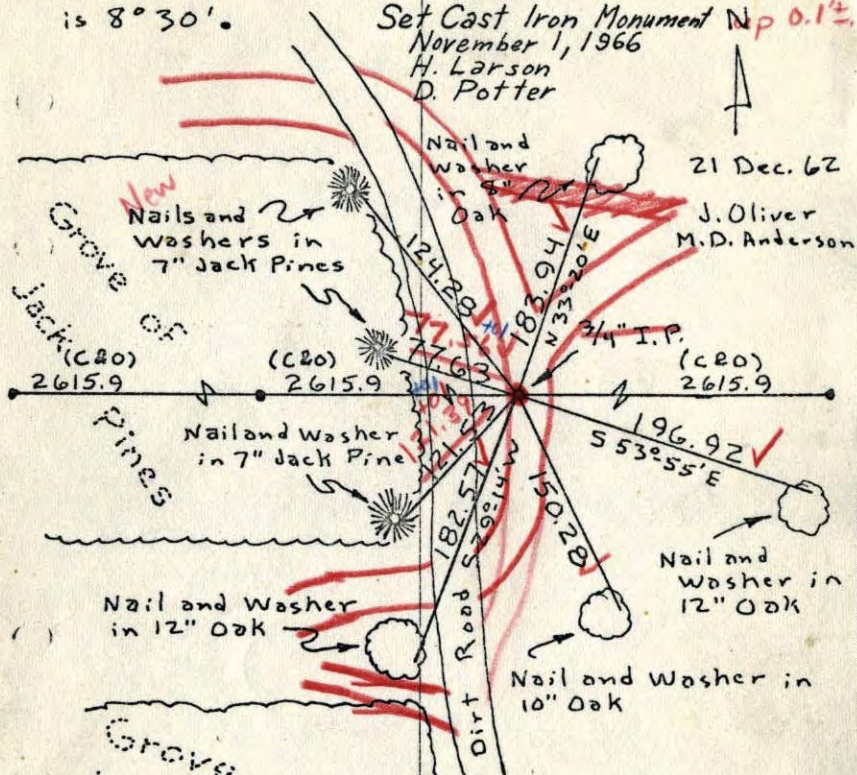 is 8°30'.
Set Cast Iron Monument
November 1, 1966
H. Larson
D. Potter
N
up 0.1'±.
21 Dec. 62
J. Oliver
M.D. Anderson
Nail and
washer
in 8"
Oak
New
Nails and
Washers in
7" Jack Pines
Grove of
Jack Pines
124.28
183.94
N 33°20'E
77.63
3/4" I.P.
(C20)
2615.9
(C20)
2615.9
(C20)
2615.9
Nail and Washer
in 7" Jack Pine
121.53
196.92
S 53°55'E
182.57
S 29°14'W
150.28
Nail and
Washer in
12" Oak
Nail and Washer
in 12" Oak
Nail and Washer in
10" Oak
Dirt Road
Grove